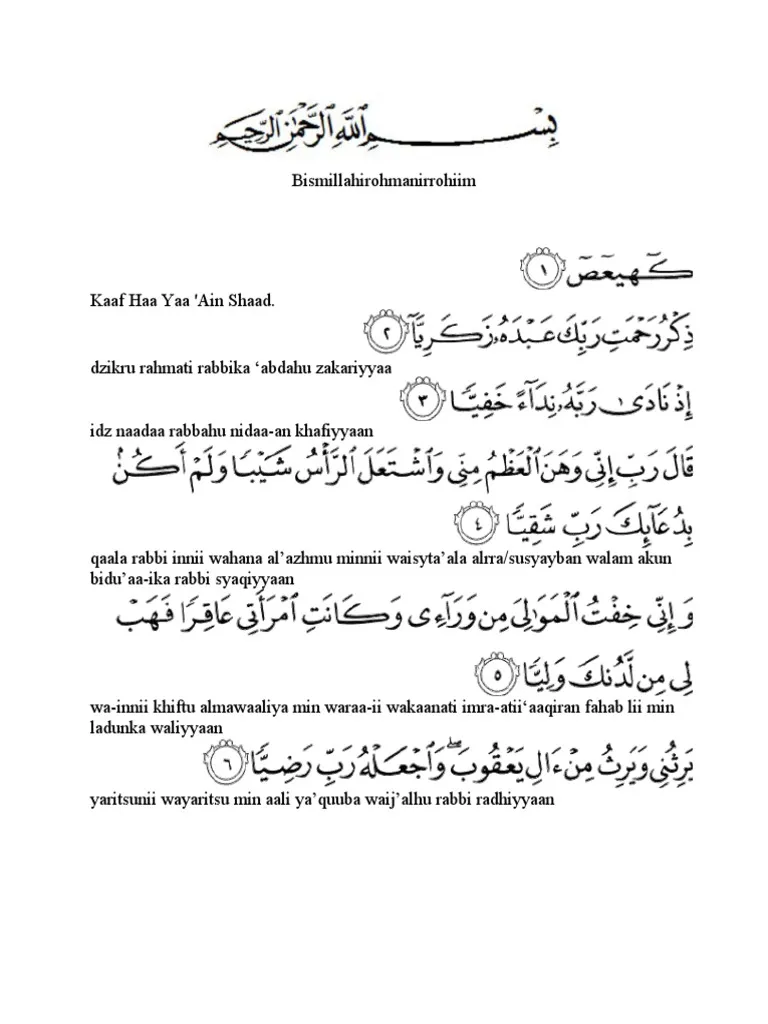 بِسْمِ ٱللَّهِ ٱلرَّحْمَٰنِ ٱلرَّحِيمِ
Bismillahirohmanirrohiim
كٓهيعٓصٓ ١
Kaaf Haa Yaa 'Ain Shaad.
ذِكْرُ رَحْمَتِ رَبِّكَ عَبْدَهُۥ زَكَرِيَّآ ٢
dzikru rahmati rabbika ‘abdahu zakariyyaa
إِذْ نَادَىٰ رَبَّهُۥ نِدَآءً خَفِيًّا ٣
idz naadaa rabbahu nidaa-an khafiyyaan
قَالَ رَبِّ إِنِّى وَهَنَ ٱلْعَظْمُ مِنِّى وَٱشْتَعَلَ ٱلرَّأْسُ شَيْبًا وَلَمْ أَكُنۢ
بِدُعَآئِكَ رَبِّ شَقِيًّا ٤
qaala rabbi innii wahana al’azhmu minnii waisyta’ala alrra/susyayban walam akun
bidu’aa-ika rabbi syaqiyyaan
وَإِنِّى خِفْتُ ٱلْمَوَٰلِىَ مِن وَرَآءِى وَكَانَتِ ٱمْرَأَتِى عَاقِرًا فَهَبْ
لِى مِن لَّدُنكَ وَلِيًّا ٥
wa-innii khiftu almawaaliya min waraa-ii wakaanati imra-atii‘aaqiran fahab lii min
ladunka waliyyaan
يَرِثُنِى وَيَرِثُ مِنْ ءَالِ يَعْقُوبَ ۖ وَٱجْعَلْهُ رَبِّ رَضِيًّا ٦
yaritsunii wayaritsu min aali ya’quuba waij’alhu rabbi radhiyyaan